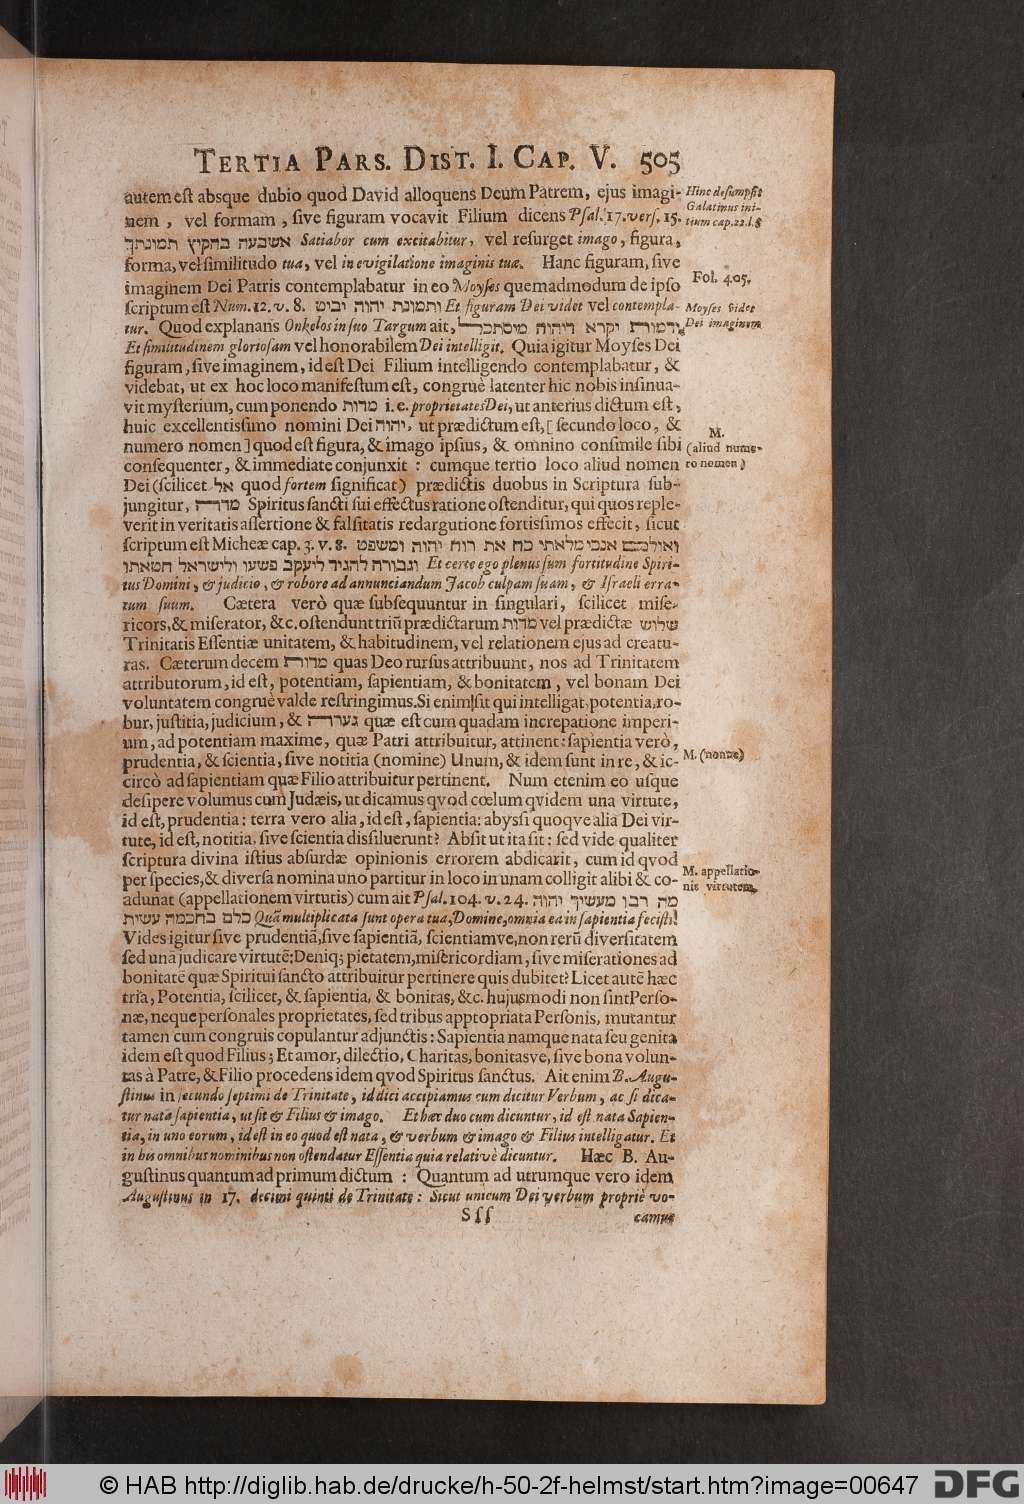 TERTIA PARS. DIST. I. CAP. V. 505
autem est absque dubio quod David alloquens Deum Patrem, ejus imagi-
nem, vel formam, sive figuram vocavit Filium dicens Psal. 17. vers. 15.
אשבעה בהקיץ תמונתך Satiabor cum excitabitur, vel resurget imago, figura,
forma, vel similitudo tua, vel in evigilatione imaginis tuæ. Hanc figuram, sive
imaginem Dei Patris contemplabatur in eo Moyses quemadmodum de ipso
scriptum est Num. 12. v. 8. ותמונת יהוה יביט Et figuram Dei videt vel contempla-
tur. Quod explanans Onkelos in suo Targum ait, ודמות יקרא דיהוה מיסתכל
Et similitudinem gloriosam vel honorabilem Dei intelligit. Quia igitur Moyses Dei
figuram, sive imaginem, id est Dei Filium intelligendo contemplabatur, &
videbat, ut ex hoc loco manifestum est, congruè latenter hic nobis insinua-
vit mysterium, cum ponendo מדות i. e. proprietates Dei, ut anterius dictum est,
huic excellentissimo nomini Dei יהוה, ut prædictum est, [secundo loco, &
numero nomen] quod est figura, & imago ipsius, & omnino consimile sibi
consequenter, & immediate conjunxit : cumque tertio loco aliud nomen
Dei (scilicet אל quod fortem significat) prædictis duobus in Scriptura sub-
jungitur, מדה Spiritus sancti sui effectus ratione ostenditur, qui quos reple-
verit in veritatis assertione & falsitatis redargutione fortissimos effecit, sicut
scriptum est Micheæ cap. 3. v. 8. ואולם אנכי מלאתי כח את רוח יהוה ומשפט
וגבורה להגיד ליעקב פשעו ולישראל חטאתו Et certe ego plenus sum fortitudine Spiri-
tus Domini, & judicio, & robore ad annunciandum Jacob culpam suam, & Israeli erra-
tum suum. Cætera verò quæ subsequuntur in singulari, scilicet mise-
ricors, & miserator, &c. ostendunt triũ prædictarum מדות vel prædictæ שלוש
Trinitatis Essentiæ unitatem, & habitudinem, vel relationem ejus ad creatu-
ras. Cæterum decem מדות quas Deo rursus attribuunt, nos ad Trinitatem
attributorum, id est, potentiam, sapientiam, & bonitatem, vel bonam Dei
voluntatem congruè valde restringimus. Si enim sit qui intelligat, potentia, ro-
bur, justitia, judicium, & גערה quæ est cum quadam increpatione imperi-
um, ad potentiam maxime, quæ Patri attribuitur, attinent: sapientia verò,
prudentia, & scientia, sive notitia (nomine) Unum, & idem sunt in re, & ic-
circò ad sapientiam quæ Filio attribuitur pertinent. Num etenim eo usque
desipere volumus cum Judæis, ut dicamus qvod cœlum qvidem una virtute,
id est, prudentia: terra vero alia, id est, sapientia: abyssi quoqve alia Dei vir-
tute, id est, notitia, sive scientia dissiluerunt? Absit ut ita sit: sed vide qualiter
scriptura divina istius absurdæ opinionis errorem abdicarit, cum id qvod
per species, & diversa nomina uno partitur in loco in unam colligit alibi & co-
adunat (appellationem virtutis) cum ait Psal. 104. v. 24. מה רבו מעשיך יהוה
כלם בחכמה עשית Quã multiplicata sunt opera tua, Domine, omnia ea in sapientia fecisti!
Vides igitur sive prudentiã, sive sapientiã, scientiamve, non rerũ diversitatem
sed unã judicare virtutẽ: Deniq; pietatem, misericordiam, sive miserationes ad
bonitatẽ quæ Spiritui sancto attribuitur pertinere quis dubitet? Licet autẽ hæc
tria, Potentia, scilicet, & sapientia, & bonitas, &c. hujusmodi non sint Perso-
næ, neque personales proprietates, sed tribus appropriata Personis, mutantur
tamen cum congruis copulantur adjunctis: Sapientia namque nata seu genita
idem est quod Filius; Et amor, dilectio, Charitas, bonitasve, sive bona volun-
tas à Patre, & Filio procedens idem qvod Spiritus sanctus. Ait enim B. Augu-
stinus in secundo septimi de Trinitate, id dici accipiamus cum dicitur Verbum, ac si dica-
tur nata sapientia, ut sit & Filius & imago. Et hæc duo cum dicuntur, id est nata Sapien-
tia, in uno eorum, id est in eo quod est nata, & verbum & imago & Filius intelligatur. Et
in his omnibus nominibus non ostendatur Essentia quia relativè dicuntur. Hæc B. Au-
gustinus quantum ad primum dictum : Quantum ad utrumque vero idem
Augustinus in 17. decimi quinti de Trinitate : Sicut unicum Dei verbum propriè vo-
Sss camus
Hinc desumpsit
Galatinus ini-
tium cap. 22. l. 8
Fol. 405.
Moyses videt
Dei imaginem
M.
(aliud nume-
ro nomen)
M. (nonne)
M. appellatio-
nis virtutem,
© HAB http://diglib.hab.de/drucke/h-50-2f-helmst/start.htm?image=00647
DFG